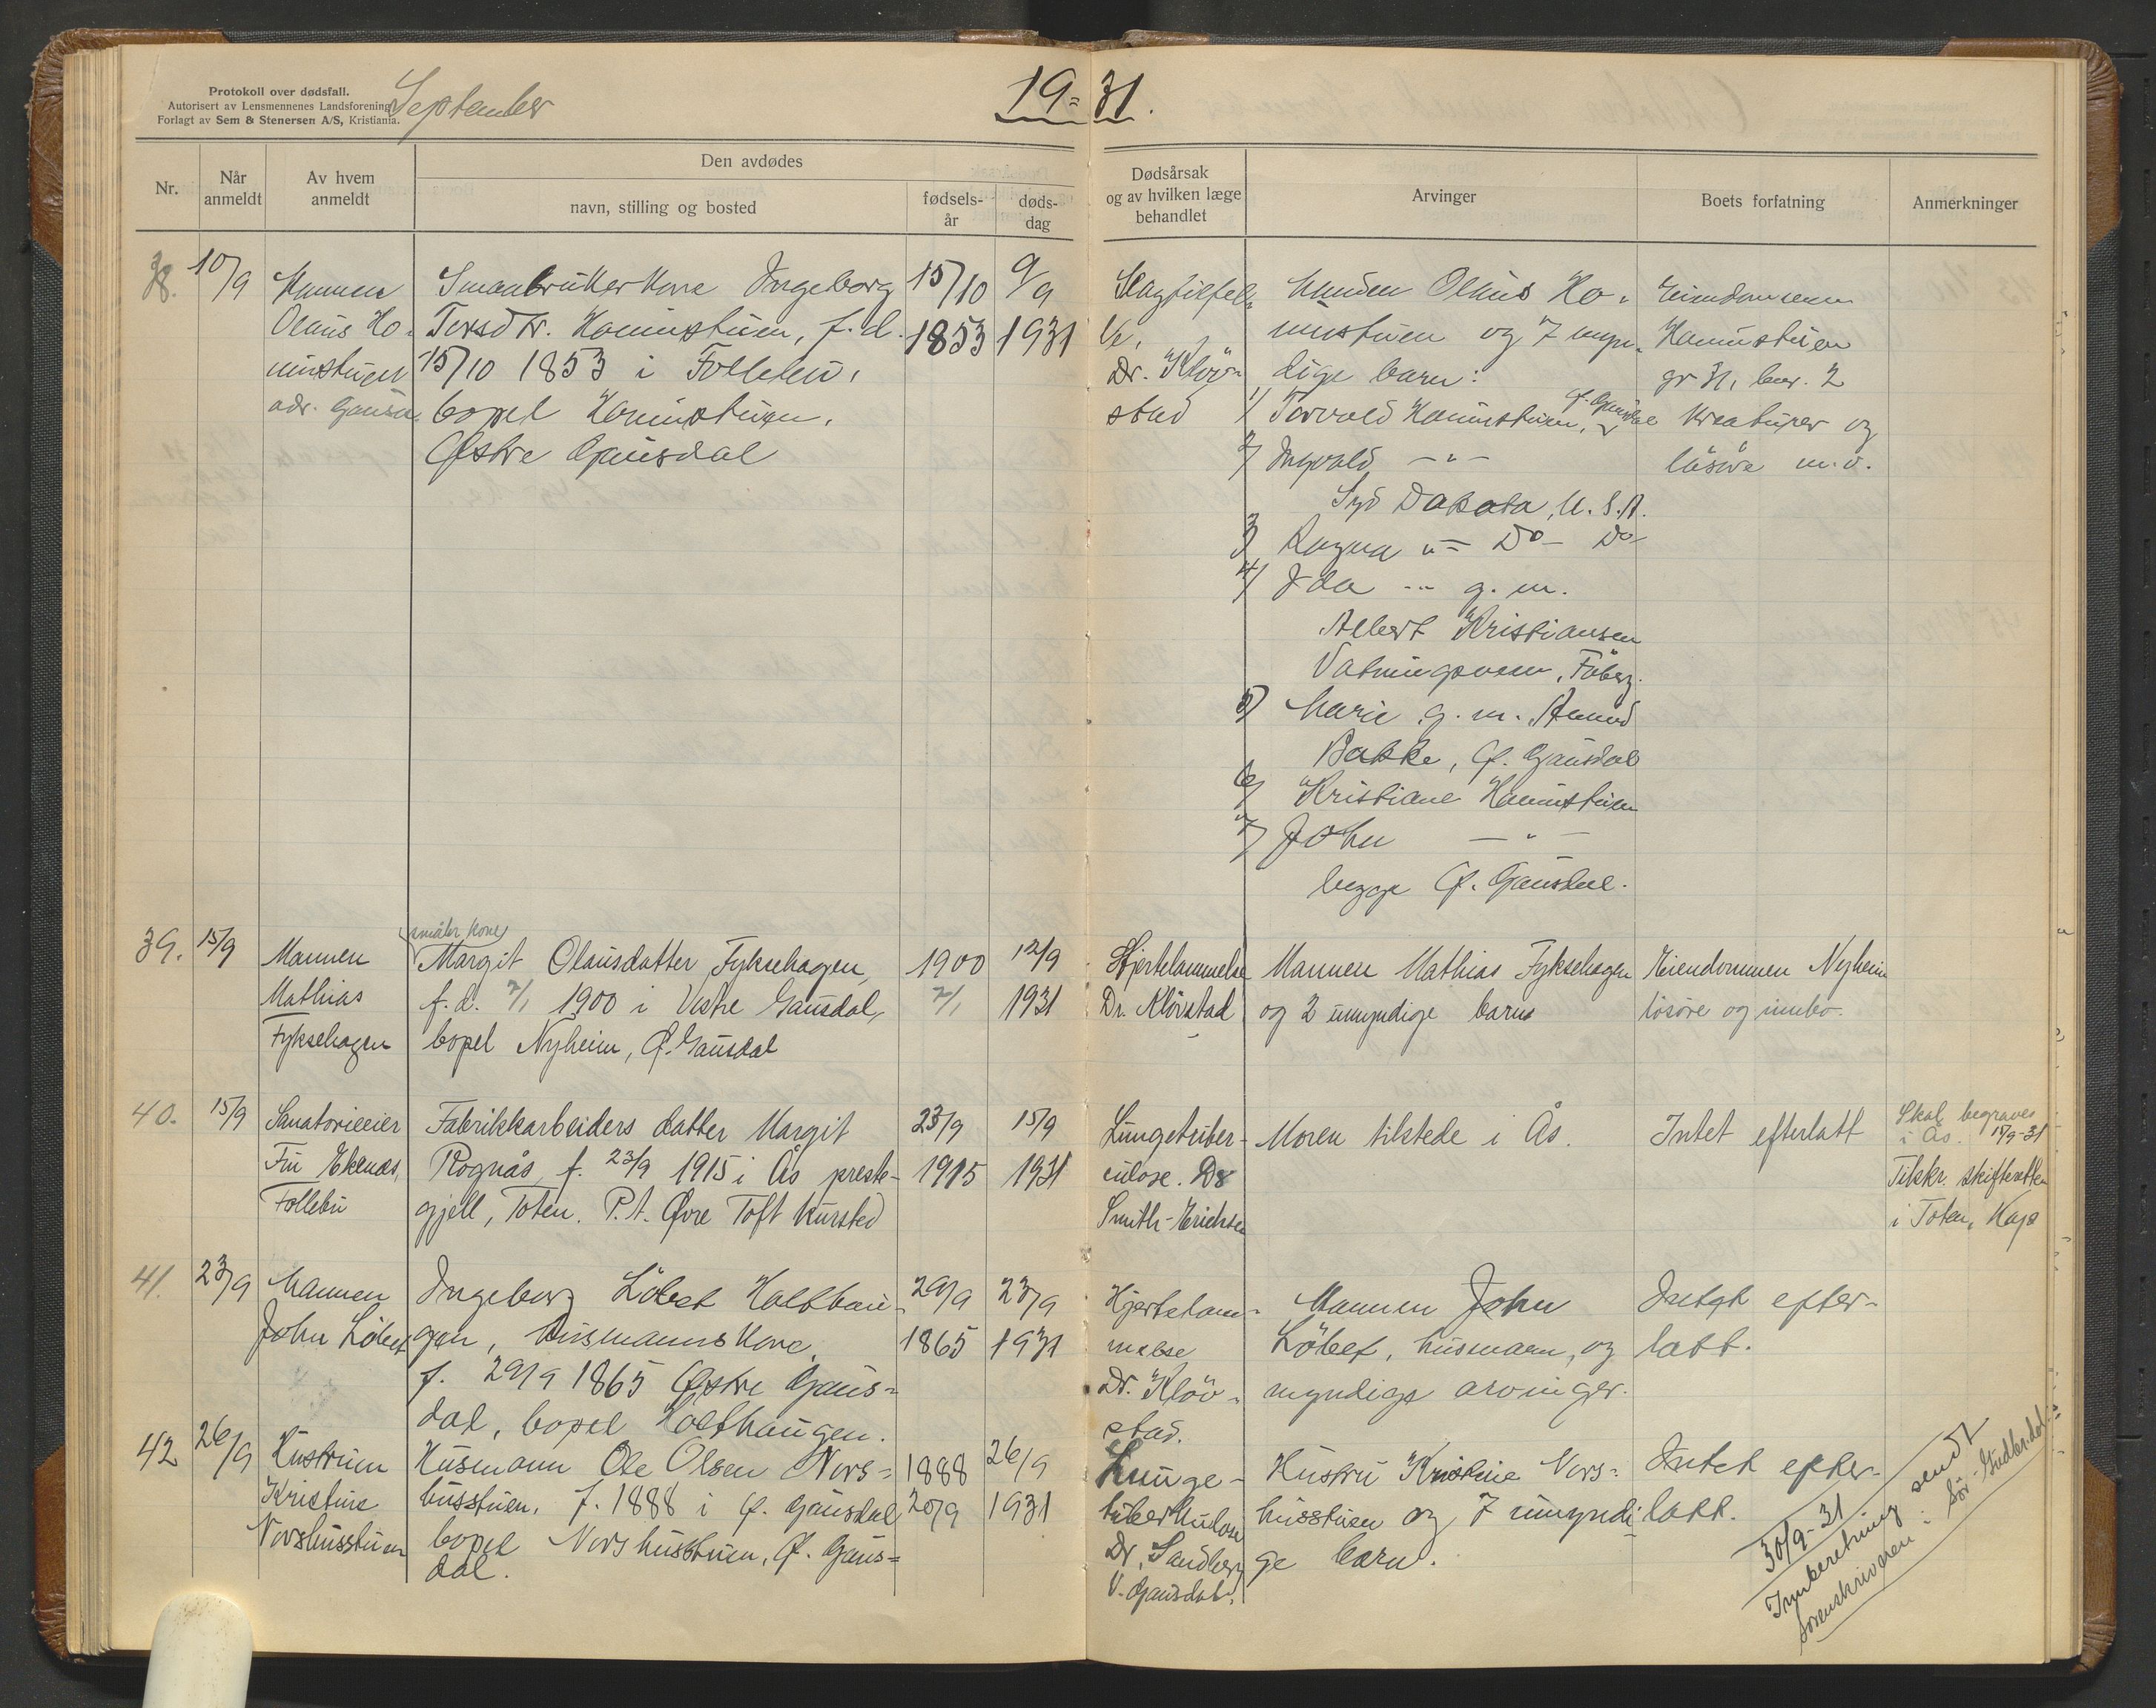 Protokoll over dødsfall.
Autorisert av Lensmennenes Landsforening
Forlagt av Sem & Stenersen A/S, Kristiania.
September
19=31.
Nr.
Når anmeldt
Av hvem anmeldt
Den avdødes
navn, stilling og bosted
fødsels-år
døds-dag
Dødsårsak og av hvilken læge behandlet
Arvinger
Boets forfatning
Anmerkninger
38.
10/9
Mannen
Olaus Ho-
minstuen
adr. Gausd.
Smaabrukerkone Ingeborg
Torsdtr. Hominstuen, f. d.
15/10 1853 i Follebu,
bopel Hominstuen,
Østre Gausdal
15/10
1853
9/9
1931
Slagtilfel-
le,
Dr. Kløv-
stad
Manden Olaus Ho-
minstuen og 7 myn-
dige barn:
1) Torvald Hominstuen, Ø. Gausdal
2) Ingvald - " -
Syd Dakota, U.S.A.
3) Ragna " - Do - Do -
4) Ida - " - g. m.
Albert Kristiansen
Fåberg.
5) Marie g. m. Amund
Bakke, Ø. Gausdal
6) Kristiane Hominstuen
7) John - " -
begge Ø. Gausdal.
Eiendommen
Hominstuen
gr. 31, bnr. 2
kreaturer og
løsøre m. v.
39.
15/9
Mannen
Mathias
Fyksehagen
småbr. kone
Margit Olausdatter Fyksehagen,
f. d. 2/1 1900 i Vestre Gausdal,
bopel Nyheim, Ø. Gausdal
1900
2/1
12/9
1931
Hjertelammelse
Dr. Kløvstad
Mannen Mathias Fyksehagen
og 2 umyndige barn
Eiendommen Nyheim
løsøre og innbo.
40.
15/9
Sanatorieeier
Fru Ekenæs,
Follebu
Fabrikkarbeiders datter Margit
Rognås, f. 23/9 1915 i Ås preste-
gjell, Toten. P.t. Øvre Toft kursted
23/9
1915
15/9
1931
Lungetuber-
culose. Dr
Smith-Erichsen
Moren tilstede i Ås.
Intet efterlatt
Skal begraves
i Ås. 19/9-31
Tilskr. skifteretten
i Toten, Kap
41.
23/9
Mannen
John Løbet
Ingeborg Løbet Holthau-
gen, husmannskone,
f. 29/9 1865 Østre Gaus-
dal, bopel Holthaugen.
29/9
1865
23/9
1931
Hjertelam-
melse
Dr. Kløv-
stad.
Mannen John
Løbet, husmann, og
myndige arvinger.
Intet efter-
latt.
42
26/9
Hustruen
Kristine
Norshusstuen
Husmann Ole Olsen Nors-
husstuen, f. 1888 i Ø. Gausdal
bopel Norshusstuen, Ø. Gaus-
dal.
1888
20/9
26/9
1931
Lunge-
tuberkulose
Dr. Sandberg
V. Gausdal.
Hustru Kristine Nors-
husstuen og 7 umyndi-
ge barn.
Intet efter-
latt.
30/9-31
Innberetning sendt
sorenskriveren i Sør-Gudbr.dal.